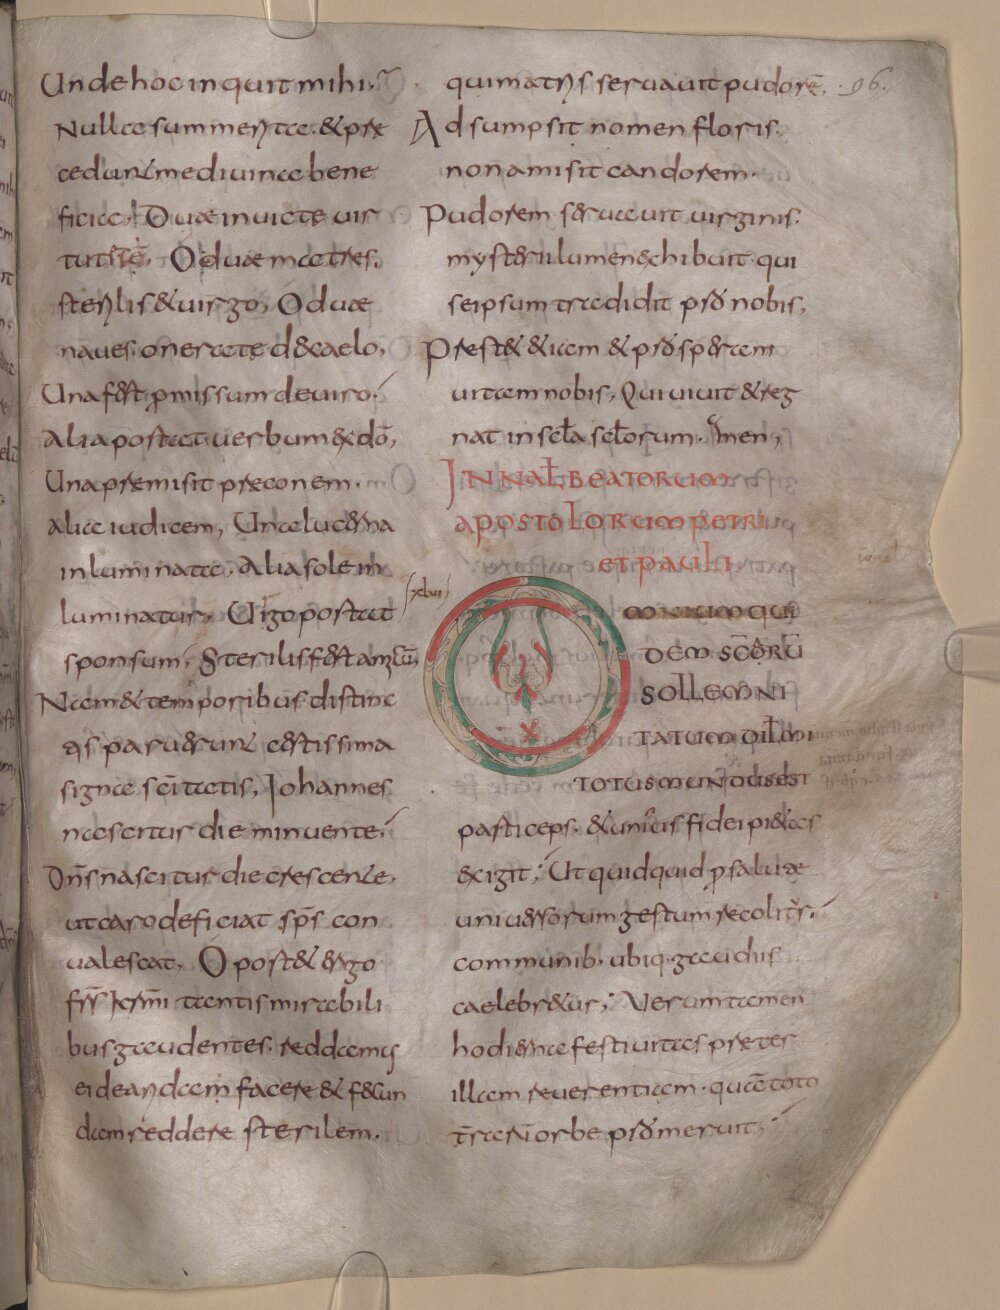 Unde hoc inquit mihi;
Nullae sum meritae. & prę
cedunt me diuinae bene
ficiae, Duae inuicte uir
tutis, O duae matres,
sterilis & uirgo, O duae
naues. onerate d& caelo,
Una fert p missum de uiro;
Alia postat uerbum ex dō,
Una premisit preconem.
aliae iudicem, Una lucerna
inluminata, Alia sole in
luminatur, Uirgo portat
sponsum, Sterilis fert amicū,
Nam & temporibus distinc
tis paruerunt certissima
signa sc̄itatis, Johannes
nascitur die minuente;
Dn̄s nascitur die crescente,
ut caro deficiat sp̄s con
ualescat, O post& ergo
frs̄ kr̄mi tantis mirabili
bus gaudentes. reddamus
ei de aridam facere & fecun
dam reddere sterilem.
qui matris seruauit pudorē,
96.
Ad sumpsit nomen floris.
non amisit candorem.
Pudorem seruauit uirginis.
mysterii lumen exhibuit. qui
seipsum tradidit pro nobis,
Prest& & iam & prosperam
uitam nobis, Qui uiuit & reg
nat in scła scłorum. amen,
IN NAŁ BEATORUM
APOSTOLORUM PETRI
ET PAULI
(xlvi)
OMNIUM QUI
DEM SC̄ORŪ
SOLLEMNI
TATUM DIŁMI
TOTUS MUNDUS EST
particeps. & unius fidei pi&as
exigit; Ut quidquid p salute
uniuersorum gestum recolitur;
communib. ubiq. gaudiis
caelebr&ur; Verumtamen
hodierna festiuitas preter
illam reuerentiam. quā toto
terrarū orbe promeruit;